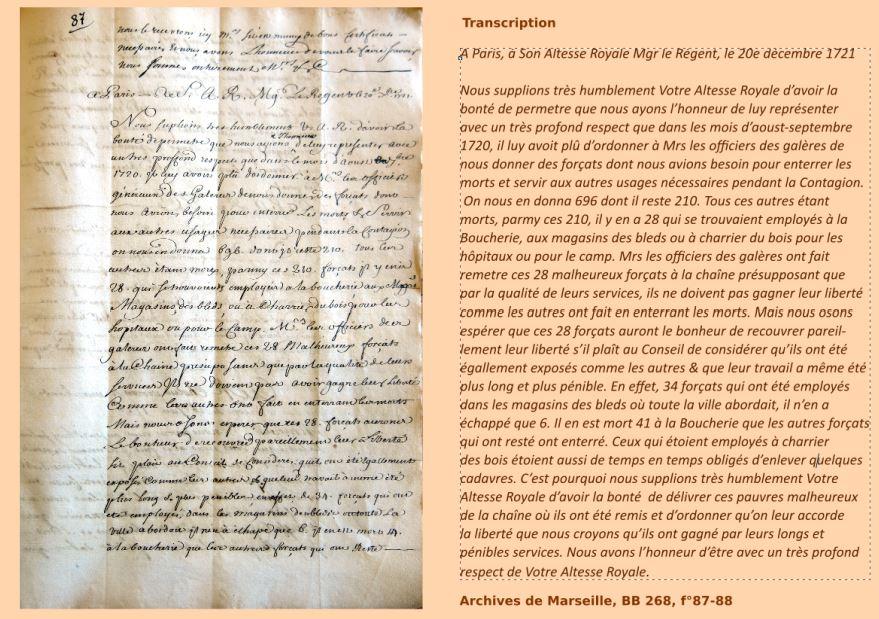 87
nous le recevrons icy
necessaires & nous avons l'honneur de vous le faire savoir
nous sommes entierement
a Paris — A S. A. R. Mgr Le Regent
Nous suplions tres humblement V. A. R. d'avoir la
bonté de permetre que nous ayons l'honneur de luy representer avec
un tres profond respect que dans les mois d'aoust
1720. il luy avoit plû d'ordonner a Mrs les officiers
des Galeres de nous donner des forcats dont
nous avions besoin pour enterrer Les morts & servir
aux autres usages necessaires pendant la Contagion
on nous en donna 696. dont il reste 210. tous les
autres étant morts, parmy ces 210. forcats il y en a
28. qui se trouvoient employés a la boucherie aux
Magasins des bleds ou a Charrier du bois pour les
hopitaux ou pour le Camp. Mrs les officiers des
galeres ont fait remetre ces 28 Malheureux forcats
a la Chaine presuposant que par la qualité de leurs
services ils ne doivent pas avoir gagné leur liberté
Comme les autres ont fait en enterrant les morts
Mais nous osons esperer que ces 28. forcats auront
Le bonheur de recouvrer pareillement leur liberté
s'il plait au Conseil de Considerer qu'ils ont été égallement
exposés comme les autres & que leur travail a meme été
plus long & plus penible en effet de 34. forcats qui ont
été employés dans les magasins des bleds ou toute La
Ville abordoit il n'en a échapé que 6. il en est mort 41.
a la boucherie que les autres forcats qui ont resté
Transcription
A Paris, à Son Altesse Royale Mgr le Régent, le 20e décembre 1721
Nous supplions très humblement Votre Altesse Royale d'avoir la
bonté de permetre que nous ayons l'honneur de luy représenter
avec un très profond respect que dans les mois d'aoust-septembre
1720, il luy avoit plû d'ordonner à Mrs les officiers des galères de
nous donner des forçats dont nous avions besoin pour enterrer les
morts et servir aux autres usages nécessaires pendant la Contagion.
On nous en donna 696 dont il reste 210. Tous ces autres étant
morts, parmy ces 210, il y en a 28 qui se trouvaient employés à la
Boucherie, aux magasins des bleds ou à charrier du bois pour les
hôpitaux ou pour le camp. Mrs les officiers des galères ont fait
remetre ces 28 malheureux forçats à la chaîne présupposant que
par la qualité de leurs services, ils ne doivent pas gagner leur liberté
comme les autres ont fait en enterrant les morts. Mais nous osons
espérer que ces 28 forçats auront le bonheur de recouvrer pareil-
lement leur liberté s'il plaît au Conseil de considérer qu'ils ont été
égallement exposés comme les autres & que leur travail a même été
plus long et plus pénible. En effet, 34 forçats qui ont été employés
dans les magasins des bleds où toute la ville abordait, il n'en a
échappé que 6. Il en est mort 41 à la Boucherie que les autres forçats
qui ont resté ont enterré. Ceux qui étoient employés à charrier
des bois étoient aussi de temps en temps obligés d'enlever quelques
cadavres. C'est pourquoi nous supplions très humblement Votre
Altesse Royale d'avoir la bonté de délivrer ces pauvres malheureux
de la chaîne où ils ont été remis et d'ordonner qu'on leur acorde
la liberté que nous croyons qu'ils ont gagné par leurs longs et
pénibles services. Nous avons l'honneur d'être avec un très profond
respect de Votre Altesse Royale.
Archives de Marseille, BB 268, f°87-88